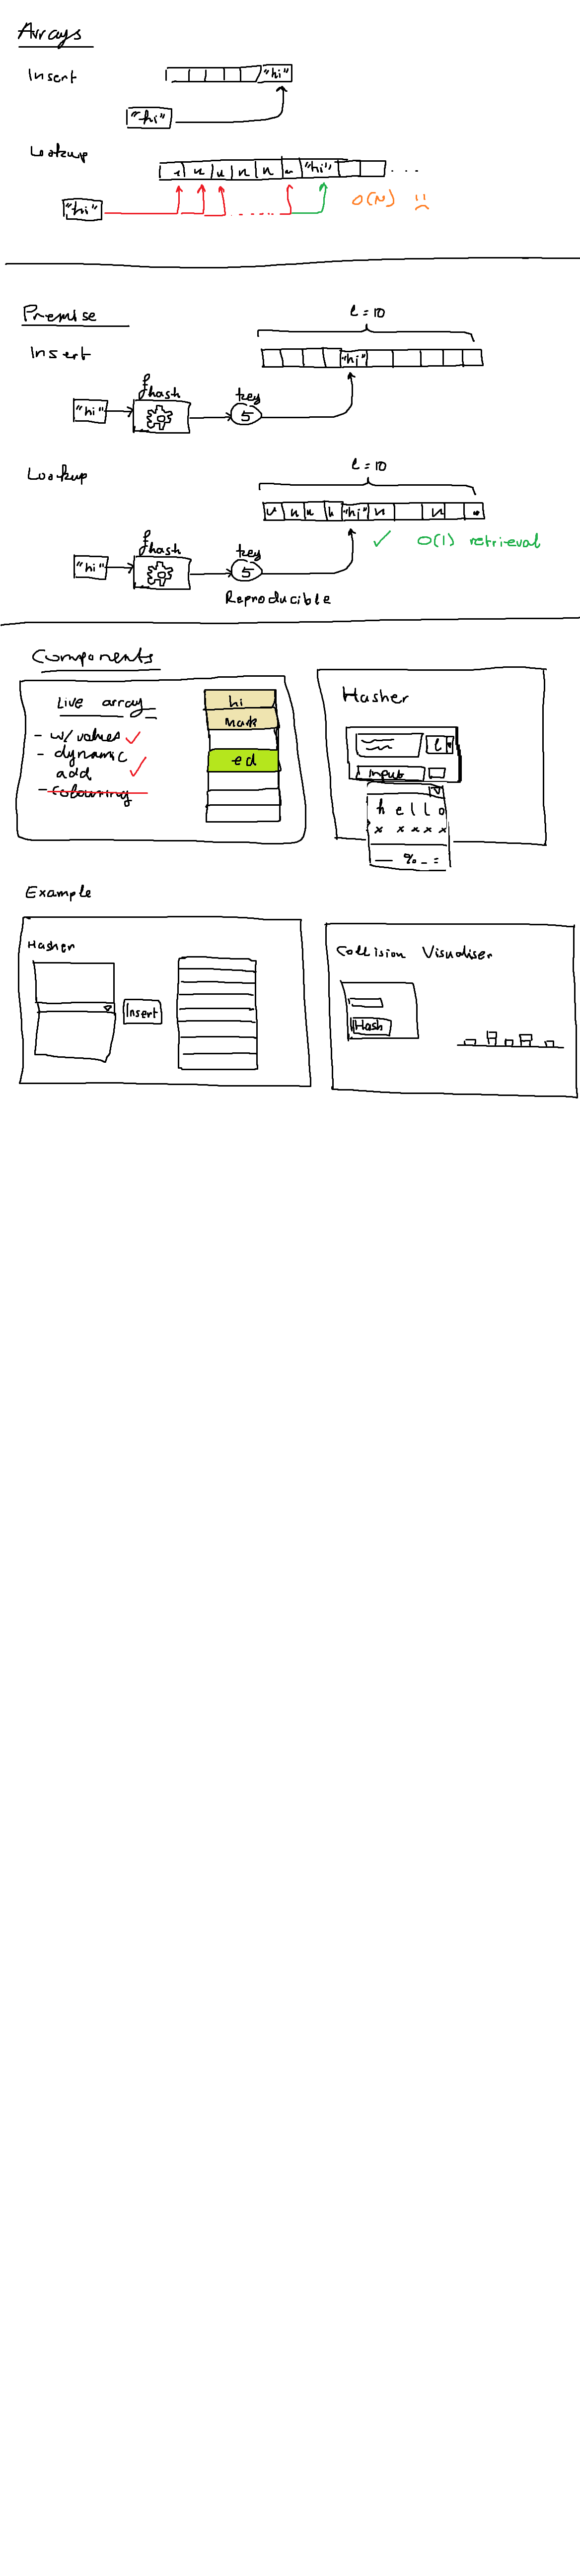 Arrays
Insert
"hi"
"hi"
Lookup
n n n n "hi" ...
"hi"
O(N)
Premise
l = 10
Insert
"hi"
fhash
key
"hi"
5
Lookup
l = 10
n n n "hi" n n
O(1) retrieval
fhash
key
"hi"
5
Reproducible
Components
Live array
- w/ values
- dynamic
add
- colouring
hi
mark
ed
Hasher
l
input
h e l l o
x x x x x
— % _ =
Example
Hasher
Insert
Collision Visualiser
Hash